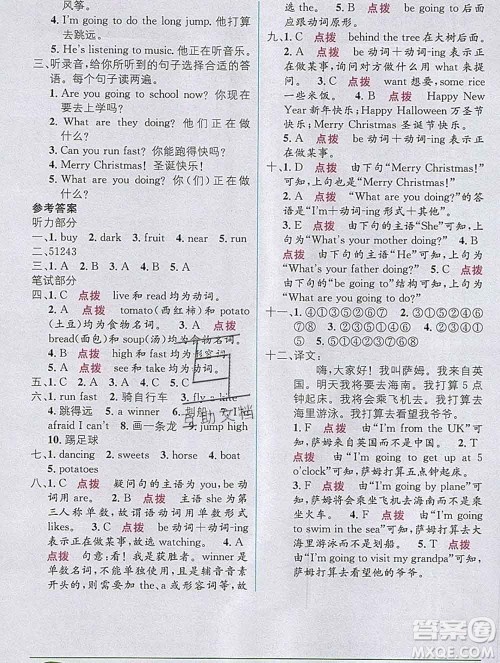 风筝。
4. I'm going to do the long jump. 他打算
去跳远。
5. He's listening to music. 他在听音乐。
三、听录音,给你所听到的句子选择合适的答
语。每个句子读两遍。
1. Are you going to school now? 你现在
要去上学吗?
2. What are they doing? 他们正在做
什么?
3. Can you run fast? 你能跑得快吗?
4. Merry Christmas! 圣诞快乐!
5. What are you doing? 你(们)正在做
什么?
参考答案
听力部分
一、1. buy 2. dark 3. fruit 4. near 5. run
二、51243
三、1. A 2. B 3. A 4. A 5. B
笔试部分
四、1. C 点拨 live和read均为动词。
2. A 点拨 tomato(西红柿)和potato
(土豆)均为食物名词。 3. A 点拨
bread(面包)和soup(汤)均为食物名词。
4. B 点拨 high和fast均为形容词。
5. B 点拨 see和take均为动词。
五、1. C 2. B 3. A 4. C 5. B
六、1. run fast 2. 骑自行车 3. fly a kite
4. 跳得远 5. a winner 6. 划船 7. I'm
afraid I can't 8. 画一条龙 9. jump high
10. 踢足球
七、1. dancing 2. sweets 3. horse 4. boat
5. potatoes
八、1. C 点拨 疑问句的主语为you,be动
词用are。 2. B 点拨 主语she为第
三人称单数,故谓语动词用单数形式
does。 3. C 点拨 be动词+动词-ing
表示正在做某事,故用eating。 4. A
点拨 句意:看!我是获胜者。winner是
单数名词,不能单独使用,且前面有辅音音素
开头的,则要用the、a或形容词修饰,故
后面应跟动词原形。
九、1. C 点拨 behind the tree在大树后面。
2. C 点拨 be动词+动词-ing表示正
在做什么,对方用什么时态问,就用什么时
态回答。 3. C 点拨 want some rice
一些来米饭。 4. B 点拨 Happy New
Year新年快乐;Happy Halloween万圣节
快乐;Merry Christmas圣诞节快乐。
5. A 点拨 be动词+动词-ing表示正
在做某事。
十、1. C 点拨 由下句“Merry Christmas!”
可知,上也是“Merry Christmas!”
2. A 点拨 “What are you doing?”的答
语是“I'm+动词-ing形式+其他”。
3. B 点拨 由下句的主语“She”可知,上
句是“What's your mother doing?”
4. E 点拨 由下句的主语“He”可知,上句是
“What's your father doing?” 5. D 点拨
由下句的“be going to”结构可知,上句是
“What are you going to do?”
十二、译文:
嗨,大家好!我是萨姆。我来自英
国。明天我将要去海南。我打算5点
钟起床。我将会乘飞机去。我打算去
海里游泳而不划船。我打算去看望我
的爷爷。
1. F 点拨 由“I'm from the UK”可
知,萨姆来自英国而不是中国。 2. T
点拨 由“I'm going to get up at 5
o'clock”可知,萨姆打算五点钟起床。
3. F 点拨 由“I'm going by plane”可
知,萨姆打算乘飞机去海南,而不是
乘坐火车。 4. F 点拨 由“I'm going
to swim in the sea”可知,萨姆打算去
大海里游泳而不是划船。 5. T 点拨
由“I'm going to visit my grandpa”可
知,萨姆打算去看望他的爷爷。
互助文档
答案圈
MXQE.COM